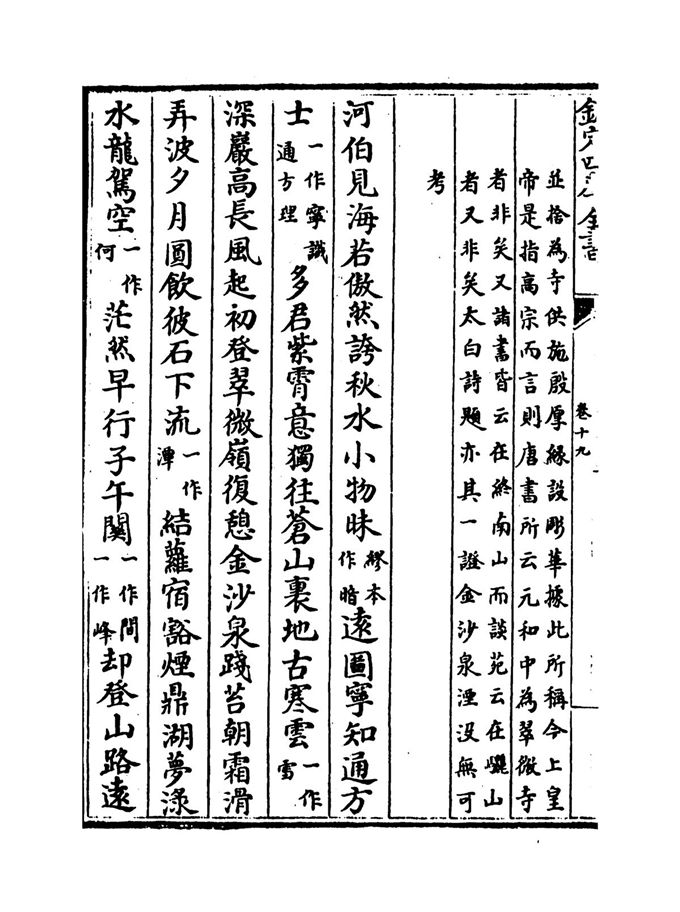 欽定四庫全書
卷十九
並捨為寺供施殷厚緣設彫華據此所稱今上皇
帝是指高宗而言則唐書所云元和中為翠微寺
者非矣又諸書皆云在終南山而談苑云在驪山
者又非矣太白詩題亦其一證金沙泉湮没無可
考
河伯見海若傲然誇秋水小物昧繆本作暗遠圖寧知通方
士一作寧識通方理多君紫霄意獨往蒼山裏地古寒雲一作雪
深巖高長風起初登翠微嶺復憩金沙泉踐苔朝霜滑
弄波夕月圓飲彼石下流一作潭結蘿宿谿煙鼎湖夢淥
水龍駕空一作何茫然早行子午關一作間一作峰却登山路遠